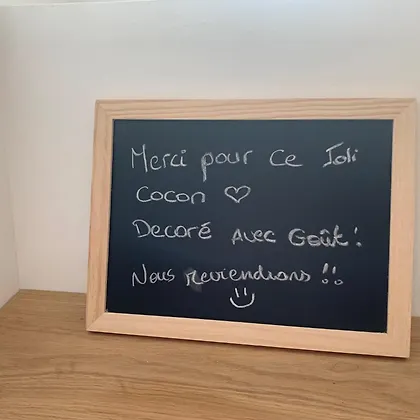 Merci pour ce Joli
Cocon ♡
Decoré avec Goût !
Nous reviendrons !!